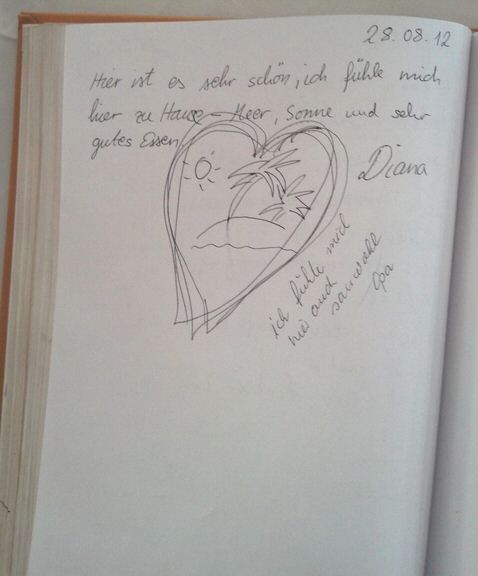 28.08.12
Hier ist es sehr schön, ich fühle mich
hier zu Hause - Meer, Sonne und sehr
gutes Essen
Diana
ich fühle mich
hier auch
sauwohl
Opa